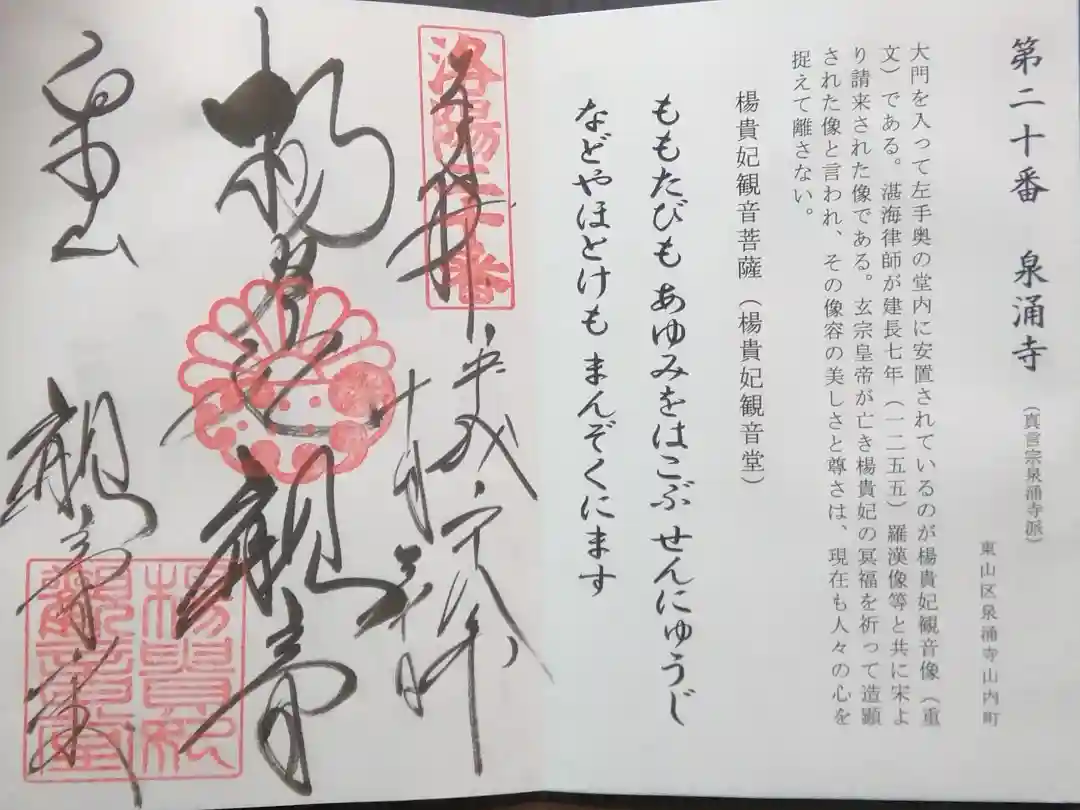 第二十番 泉涌寺 （真言宗泉涌寺派）
東山区泉涌寺山内町
大門を入って左手奥の堂内に安置されているのが楊貴妃観音像（重
文）である。湛海律師が建長七年（一二五五）羅漢像等と共に宋よ
り請来された像である。玄宗皇帝が亡き楊貴妃の冥福を祈って造顕
された像と言われ、その像容の美しさと尊さは、現在も人々の心を
捉えて離さない。
楊貴妃観音菩薩（楊貴妃観音堂）
ももたびも あゆみをはこぶ せんにゆうじ
などやほとけも まんぞくにます
洛陽二十番
平成
楊貴妃観音
泉山 観音堂
楊貴妃
観音堂